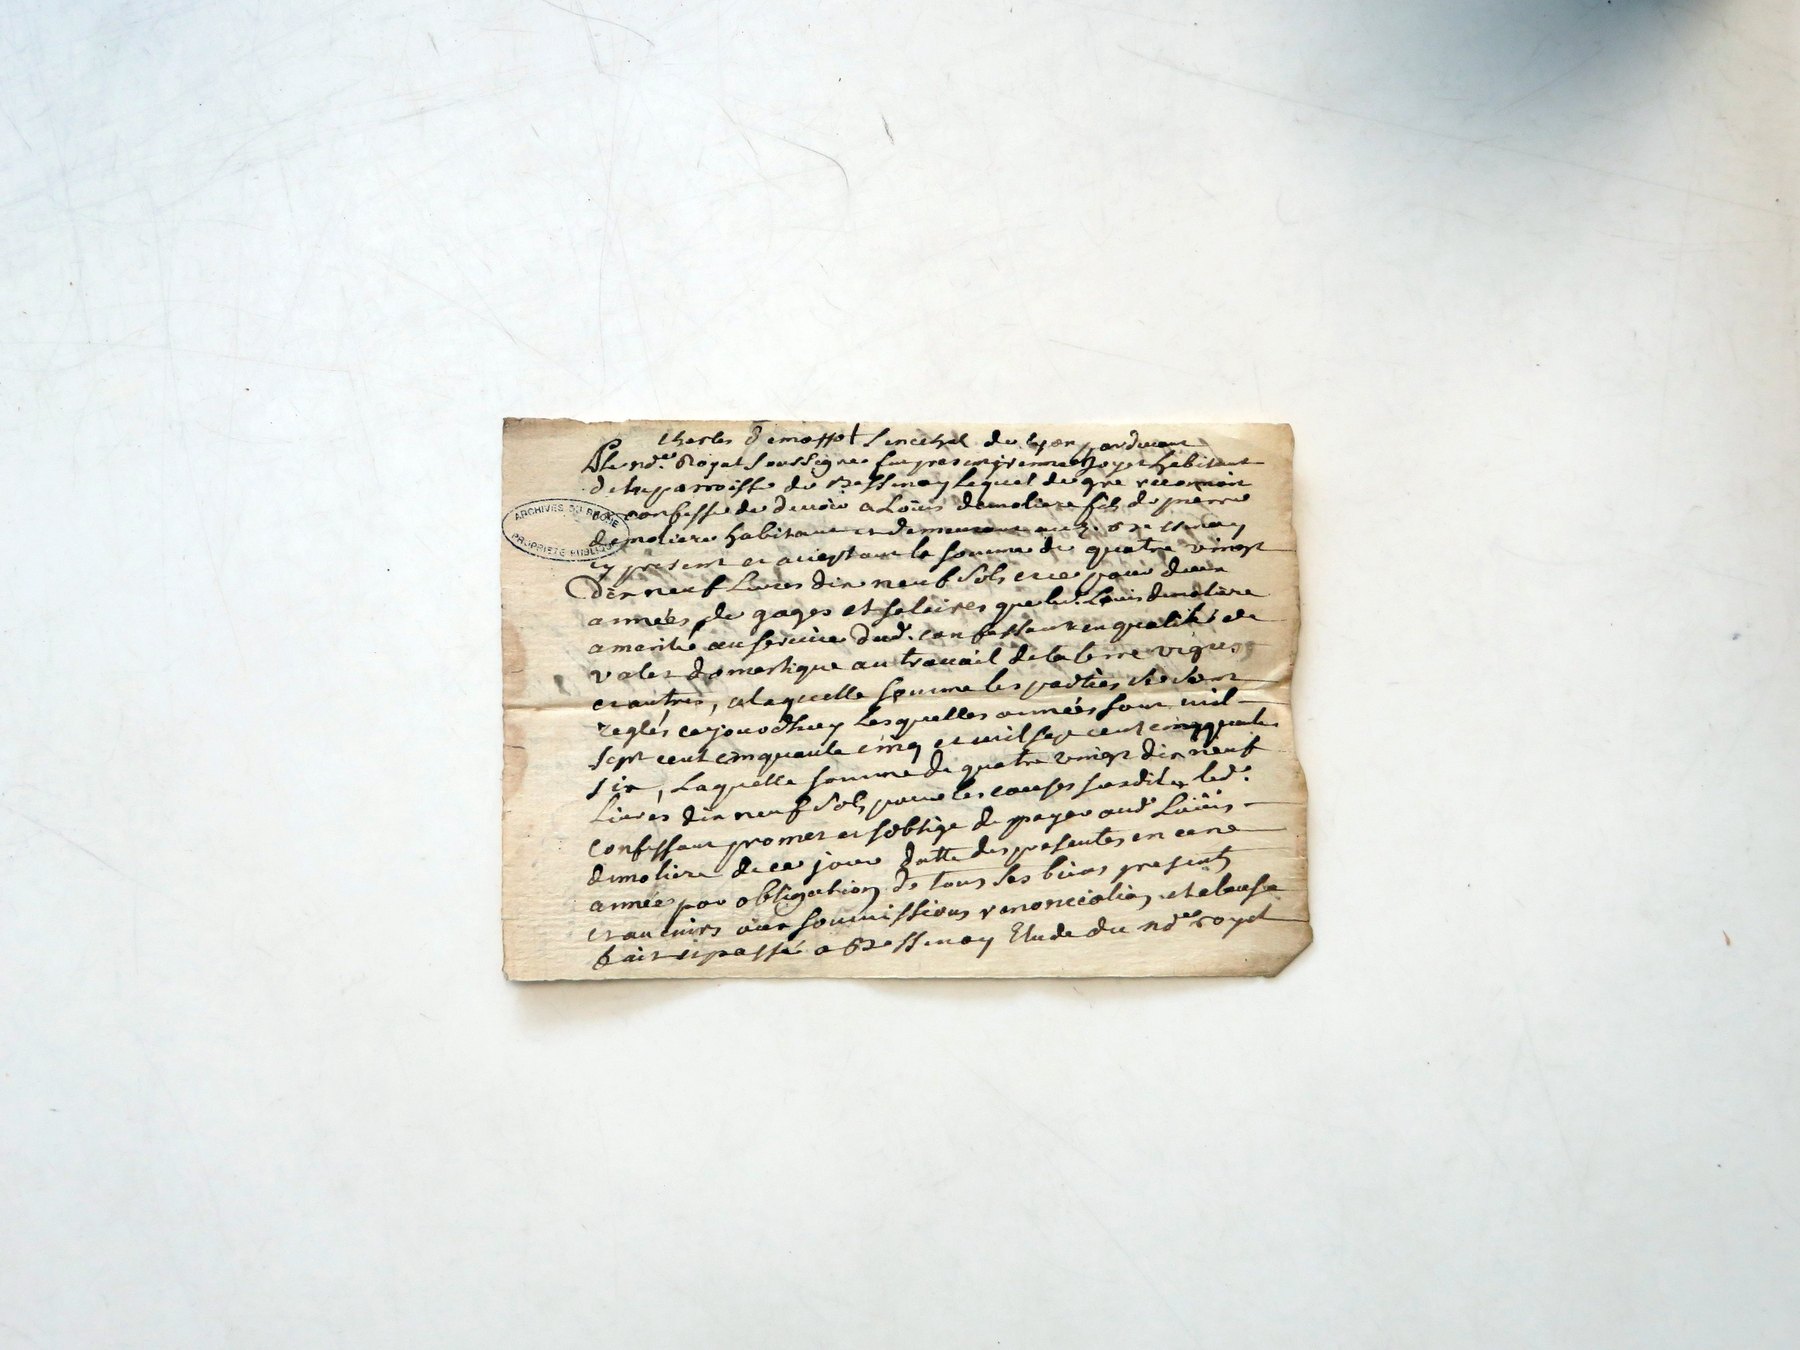 Charles demassot Senechal de lyon pardevant
Le nd.re Royal Soussigné fut present
de la parroisse de Bessenay Lequel de gré reconnoit
confesse de devoir a Loüis demoliere fils de pierre
demoliere habitant et demeurant aud. Bessenay
cy present et aceptant la somme de quatre vingt
Dix neuf Livres dix neuf Sols et ce pour deux
années de gages et salaires que led. Louis demoliere
a merité au service dud. confessant en qualité de
valet domestique au travail de la terre vignes
et autres, a laquelle somme les parties se sont
reglés ce jourdhuy Lesquelles années sont mil
Sept cent cinquante cinq et mil sept cent cinquante
six, Laquelle somme de quatre vingt dix neuf
Livres dix neuf Sols pour les causes susdites led.
confessant promet et soblige de payer aud. Loüis
demoliere de ce jour datte des presentes en
année par obligation de tous ses biens presents
et avenirs aux soumissions renonciation et clause
fait et passé a Bessenay Etude du nd.re royal
ARCHIVES DU RHÔNE
PROPRIÉTÉ PUBLIQUE